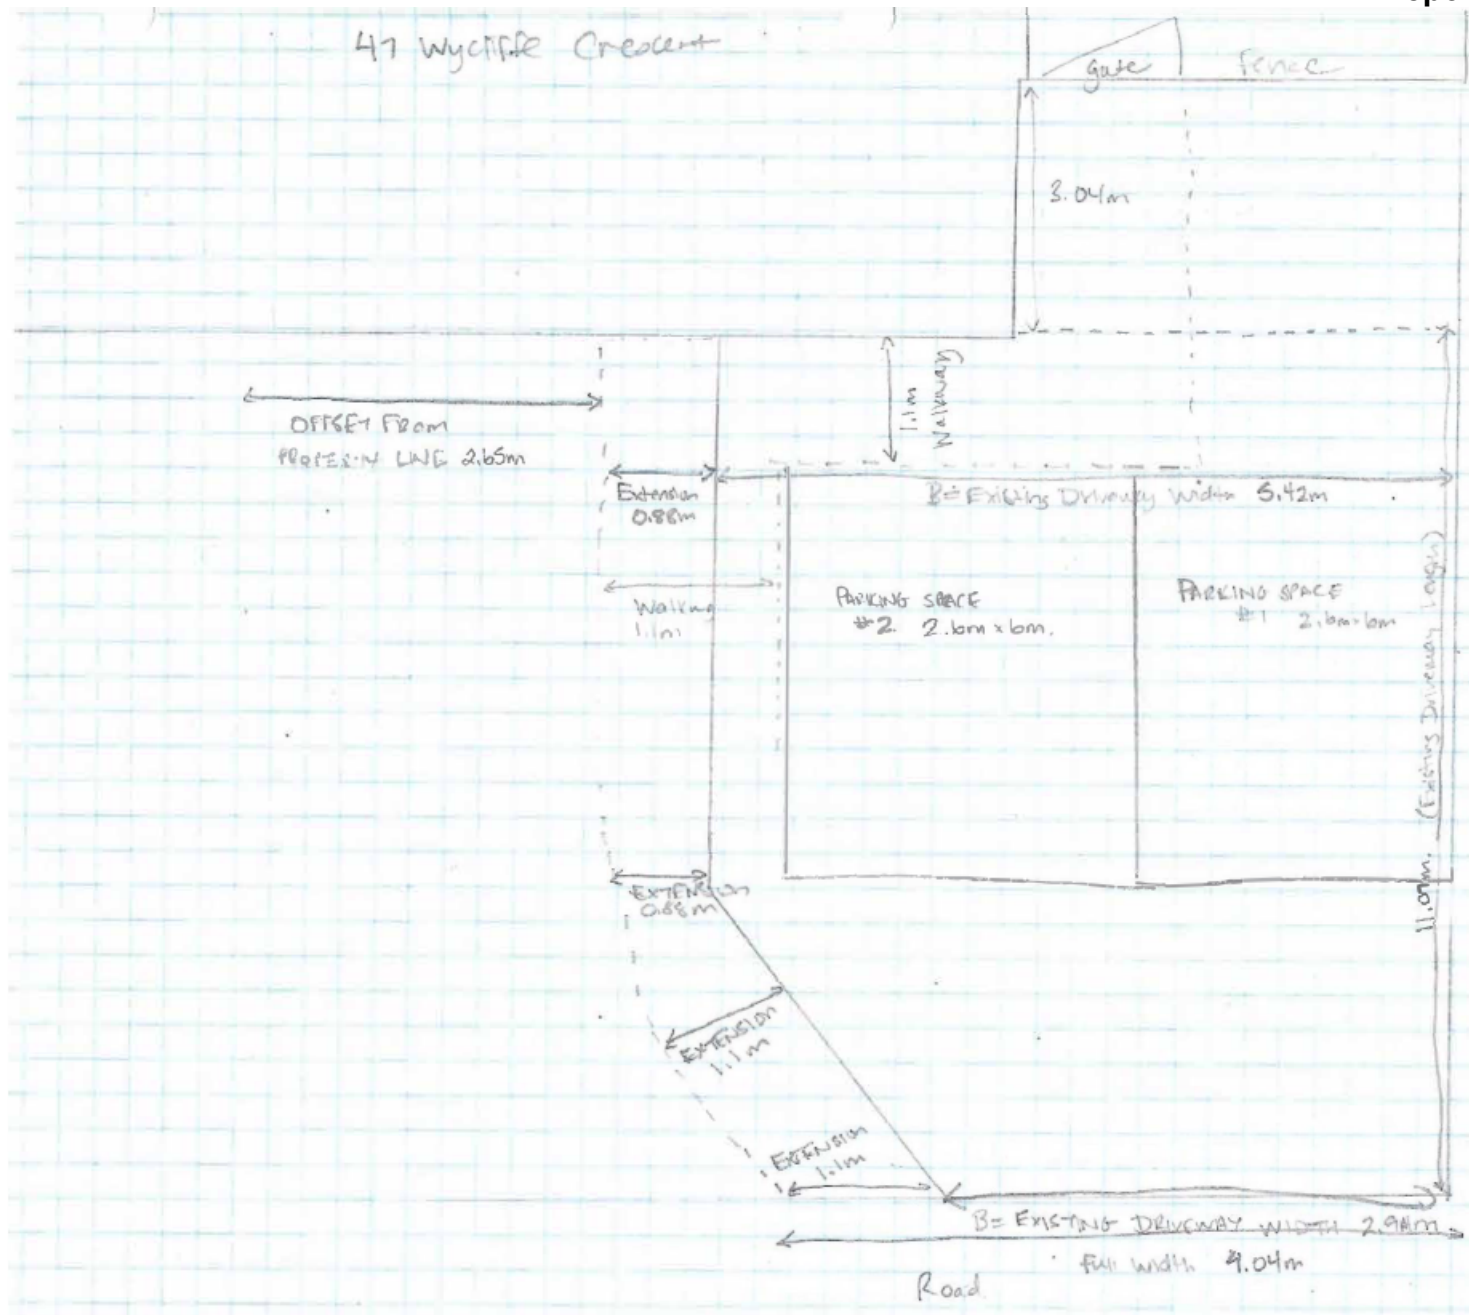 47 Wycliffe Crescent
gate
fence
3.04m
1.1m
Walkway
OFFSET FROM
PROPERTY LINE 2.65m
Extension
0.88m
B= Existing Driveway Width 5.42m
Walking
1.1m
PARKING SPACE
#2 2.6m x 6m.
PARKING SPACE
#1 2.6m x 6m
11.07m. (Existing Driveway Length)
EXTENSION
0.88m
EXTENSION
1.1m
EXTENSION
1.1m
B= EXISTING DRIVEWAY WIDTH 2.94m
Full width 4.04m
Road